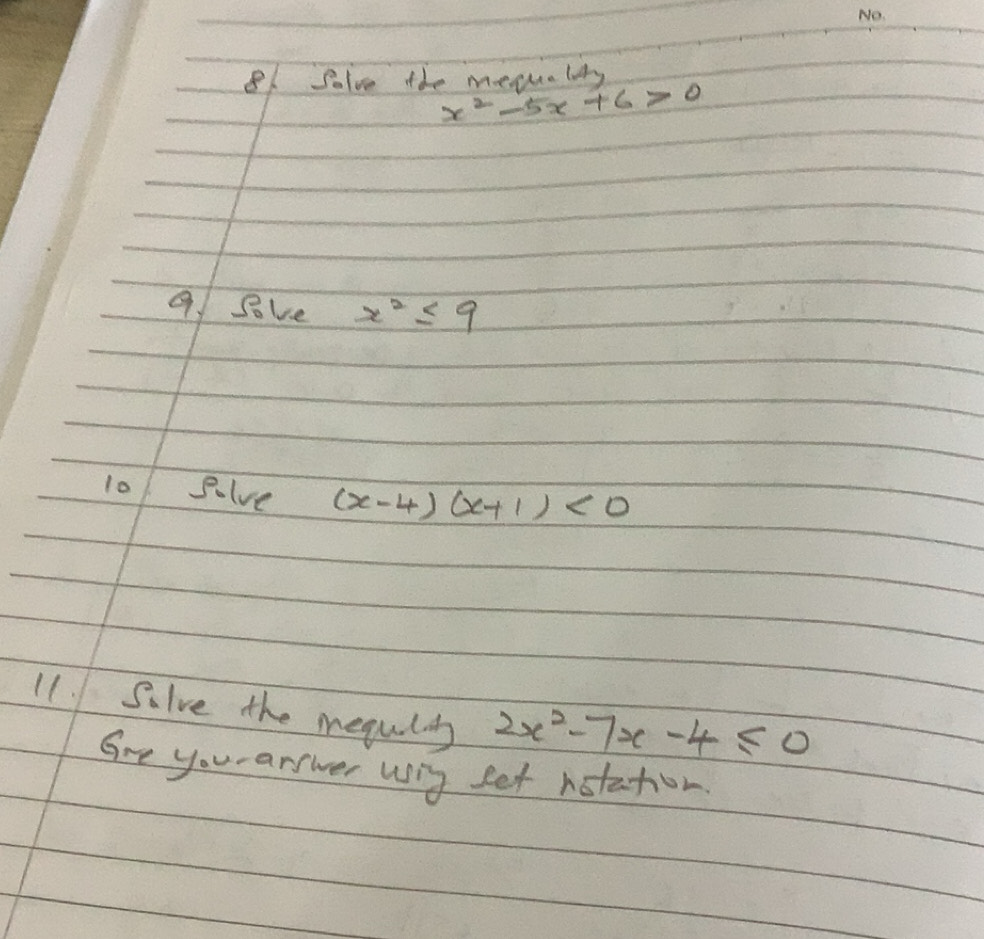 No.
8. Solve the inequality
x² - 5x + 6 > 0
9. Solve x² ≤ 9
10 Solve (x-4)(x+1) < 0
11. Solve the inequality 2x² - 7x - 4 ≤ 0
Give your answer using set notation.